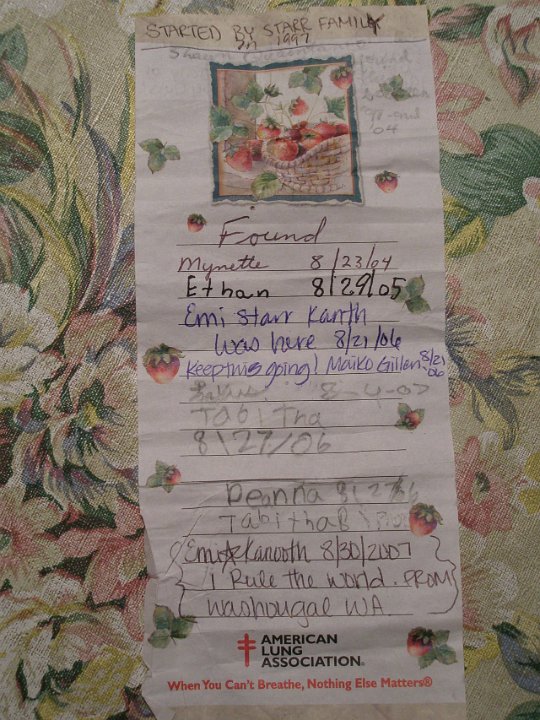 STARTED BY STARR FAMILY
in 1997
04
Found
Mynette 8/23/04
Ethan 8/29/05
Emi Starr Kanth
was here 8/21/06
Keep this going! Maiko Gillen 8/21
06
8-4-07
Tabitha
8/27/06
Deanna 8/27/6
Tabitha B
Emi Kanooth 8/30/2007
I Rule the world. FROM
Washougal WA
AMERICAN
LUNG
ASSOCIATION®
When You Can't Breathe, Nothing Else Matters®